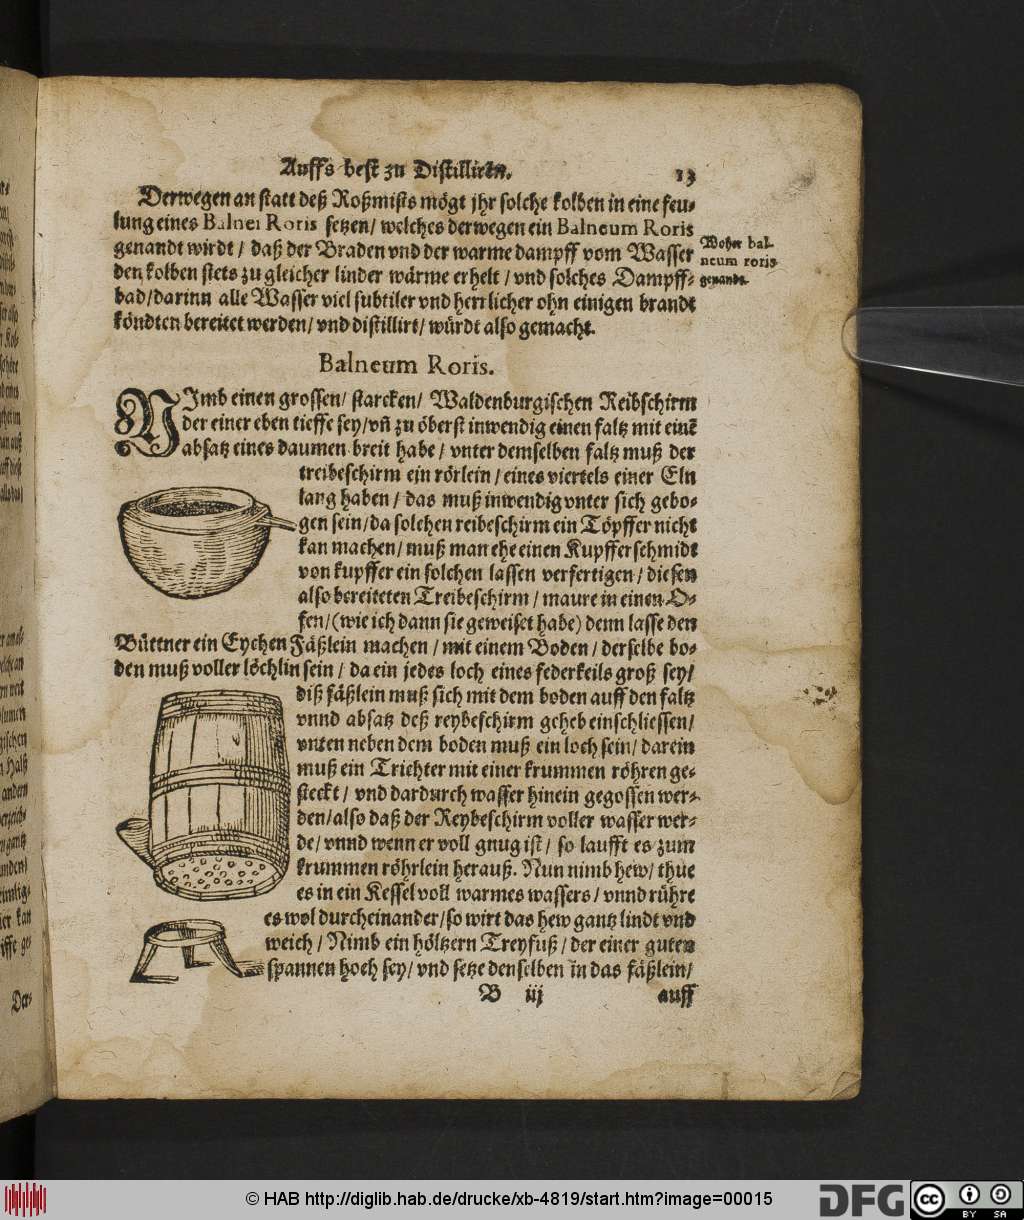 Auffs best zu Distilliren. 13
Derwegen an statt deß Roßmists mögt jhr solche kolben in eine feu-
lung eines Balnei Roris setzen / welches derwegen ein Balneum Roris
genandt wirdt / daß der Braden vnd der warme dampff vom Wasser
den kolben stets zu gleicher linder wärme erhelt / vnd solches Dampff-
bad/darinn alle Wasser viel subtiler vnd herrlicher ohn einigen brandt
köndten bereitet werden / vnd distillirt / würdt also gemacht.
Woher bal-
neum roris
genandt.
Balneum Roris.
NImb einen grossen / starcken / Waldenburgischen Reibschirm
der einer eben tieffe sey / vñ zu öberst inwendig einen faltz mit einē
absatz eines daumen breit habe / vnter demselben faltz muß der
treibeschirm ein rörlein / eines viertels einer Eln
lang haben / das muß inwendig vnter sich gebo-
gen sein / da solchen reibeschirm ein Töpffer nicht
kan machen / muß man ehe einen Kupfferschmidt
von kupffer ein solchen lassen verfertigen / diesen
also bereiteten Treibeschirm / maure in einen O-
fen / (wie ich dann sie geweiset habe) denn lasse den
Büttner ein Eychen Fäßlein machen / mit einem Boden / derselbe bo-
den muß voller löchlin sein / da ein jedes loch eines federkeils groß sey /
diß fäßlein muß sich mit dem boden auff den faltz
vnnd absatz deß reybeschirm geheb einschliessen /
vnten neben dem boden muß ein loch sein / darein
muß ein Trichter mit einer krummen röhren ge-
steckt / vnd dardurch wasser hinein gegossen wer-
den / also daß der Reybeschirm voller wasser wer-
de / vnnd wenn er voll gnug ist / so laufft es zum
krummen röhrlein herauß. Nun nimb hew / thue
es in ein Kessel voll warmes wassers / vnnd rühre
es wol durcheinander / so wirt das hew gantz lindt vnd
weich / Nimb ein höltzern Treyfuß / der einer guten
spannen hoch sey / vnd setze denselben in das fäßlein /
B iij auff
Der-
© HAB http://diglib.hab.de/drucke/xb-4819/start.htm?image=00015
DFG
cc BY SA